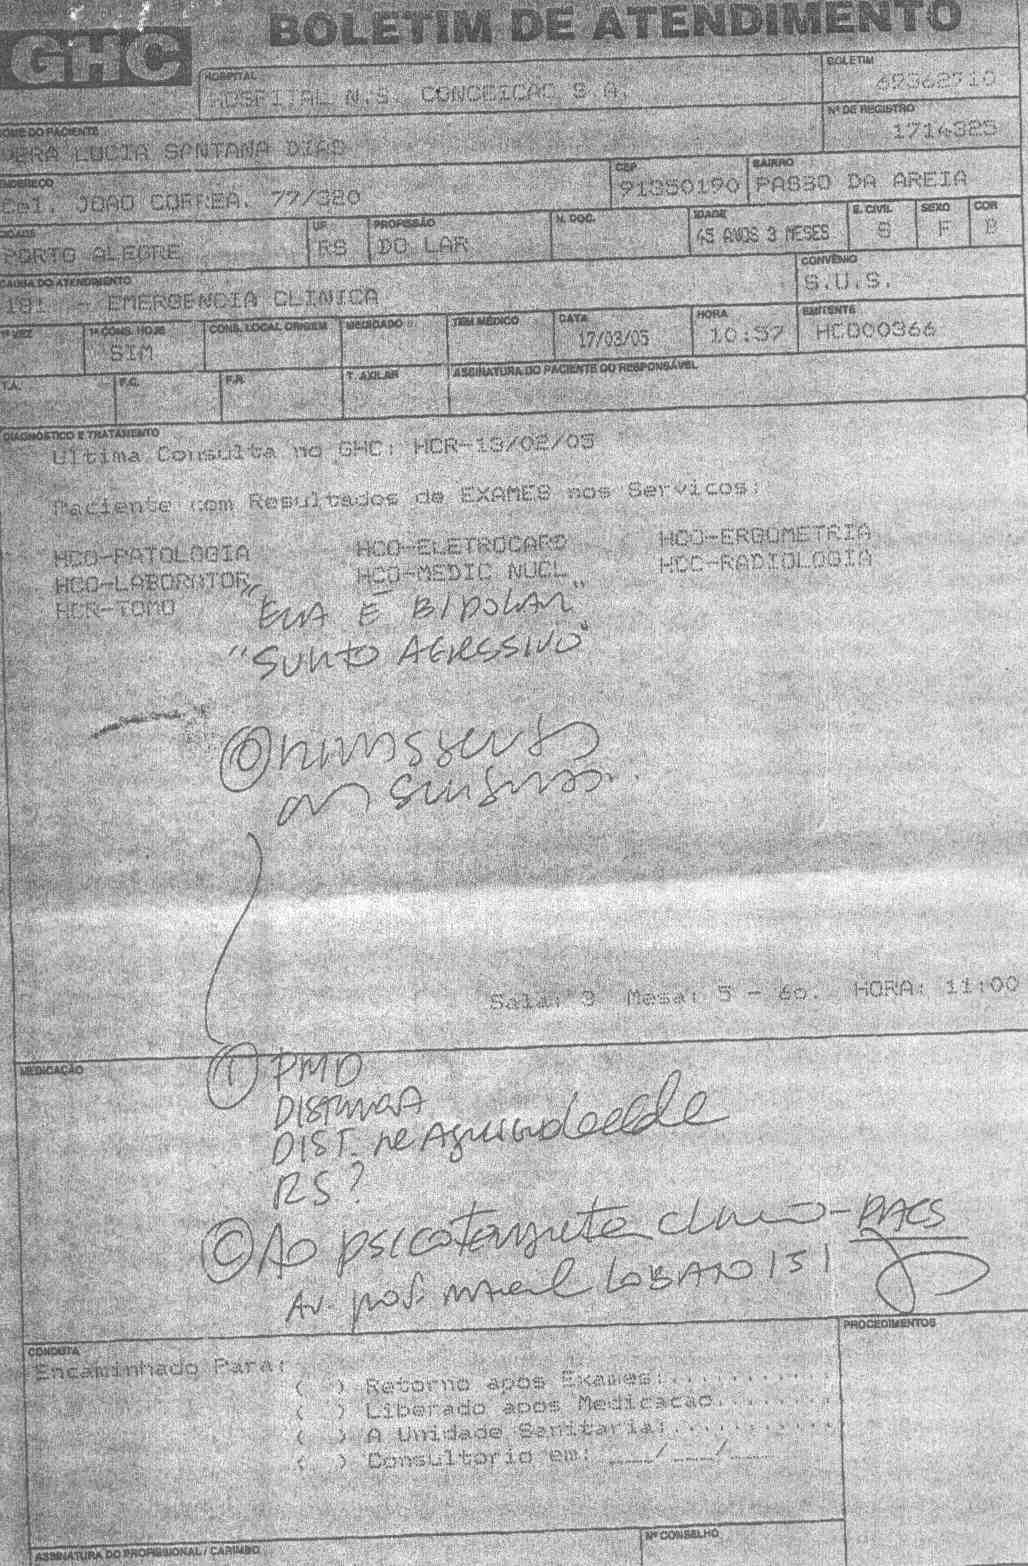 GHC
BOLETIM DE ATENDIMENTO
HOSPITAL
HOSPITAL N.S. CONCEICAO S.A.
BOLETIM
69362710
NOME DO PACIENTE
VERA LUCIA SANTANA DIAS
Nº DE REGISTRO
1714325
ENDEREÇO
Cel. JOAO CORREA. 77/320
CEP
91350190
BAIRRO
PASSO DA AREIA
CIDADE
PORTO ALEGRE
UF
RS
PROFISSÃO
DO LAR
N. DOC.
IDADE
45 ANOS 3 MESES
E. CIVIL
S
SEXO
F
COR
B
CAUSA DO ATENDIMENTO
181 - EMERGENCIA CLINICA
CONVÊNIO
S.U.S.
1ª VEZ
1ª CONS. HOJE
SIM
CONS. LOCAL ORIGEM
MEDICADO
TEM MÉDICO
DATA
17/03/05
HORA
10:57
EMITENTE
HC000366
T.A.
F.C.
F.R.
T. AXILAR
ASSINATURA DO PACIENTE OU RESPONSÁVEL
DIAGNÓSTICO E TRATAMENTO
Ultima Consulta no GHC: HCR-13/02/05
Paciente com Resultados de EXAMES nos Servicos:
HCO-PATOLOGIA HCO-ELETROCARD HCO-ERGOMETRIA
HCO-LABORATOR HCO-MEDIC NUCL HCO-RADIOLOGIA
HCR-TOMO
"ELA É BIPOLAR"
"SURTO AGRESSIVO"
Sala: 3 Mesa: 5 - 6o. HORA: 11:00
MEDICAÇÃO
I PMD
DISTIMIA
DIST. DE
RS?
C Ao psicoterapeuta clínico - PACS
Av. prof. Manoel LOBATO 151
CONDUTA
Encaminhado Para:
( ) Retorno apos Exames:...........
( ) Liberado apos Medicacao........
( ) A Unidade Sanitaria:...........
( ) Consultorio em: ___/___/___
PROCEDIMENTOS
ASSINATURA DO PROFISSIONAL / CARIMBO
Nº CONSELHO